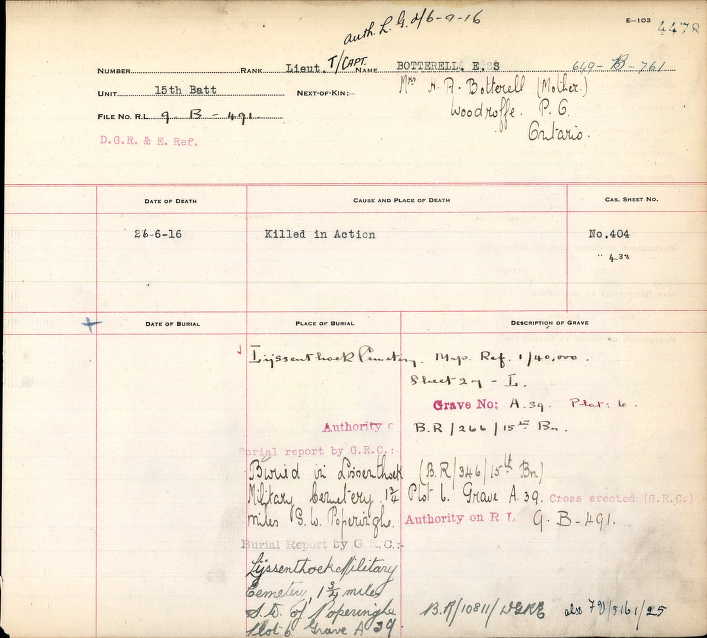 auth. L. G. 6-9-16
E-103 4478
NUMBER RANK Lieut. T/CAPT. NAME BOTTERELL. E. S 649-B-761
UNIT 15th Batt NEXT-OF-KIN:- Mrs H. A. Botterell (Mother.)
Woodroffe. P.O.
FILE NO. R.L. 9. B-491.
Ontario.
D.G.R. & E. Ref.
DATE OF DEATH CAUSE AND PLACE OF DEATH CAS. SHEET NO.
26-6-16 Killed in Action No.404
" 432
DATE OF BURIAL PLACE OF BURIAL DESCRIPTION OF GRAVE
Lijssenthoek Cemetery. Map. Ref. 1/40,000.
Sheet 27 - L.
Grave No: A.39. Plot: 6.
Authority B.R/266/15th Bn.
Burial report by G.R.C.:-
Buried in Lissenthoek (B.R/346/15th Bn)
Military Cemetery. 1¾ Plot 6. Grave A.39. Cross erected (G.R.C.)
miles S.W. Poperinghe. Authority on R L 9-B-491.
Burial Report by G.R.C:-
Lijssenthoek Military
Cemetery, 1¾ miles
S.W. of Poperinghe B.R/10811/DGRE also
Plot 6 Grave A 39